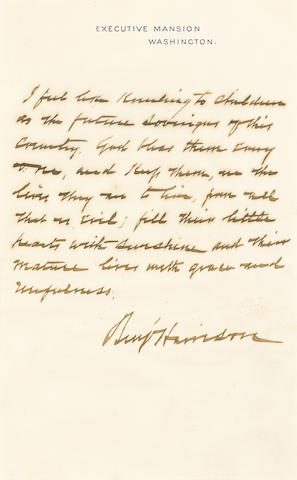 EXECUTIVE MANSION
WASHINGTON.
I feel like Kneeling to Children
as the future Sovereigns of this
Country. God bless them every
one, and Keep them, in the
lives they are to live, from all
that is Evil; fill their little
hearts with sunshine and their
mature lives with grace and
usefulness.
Benj Harrison